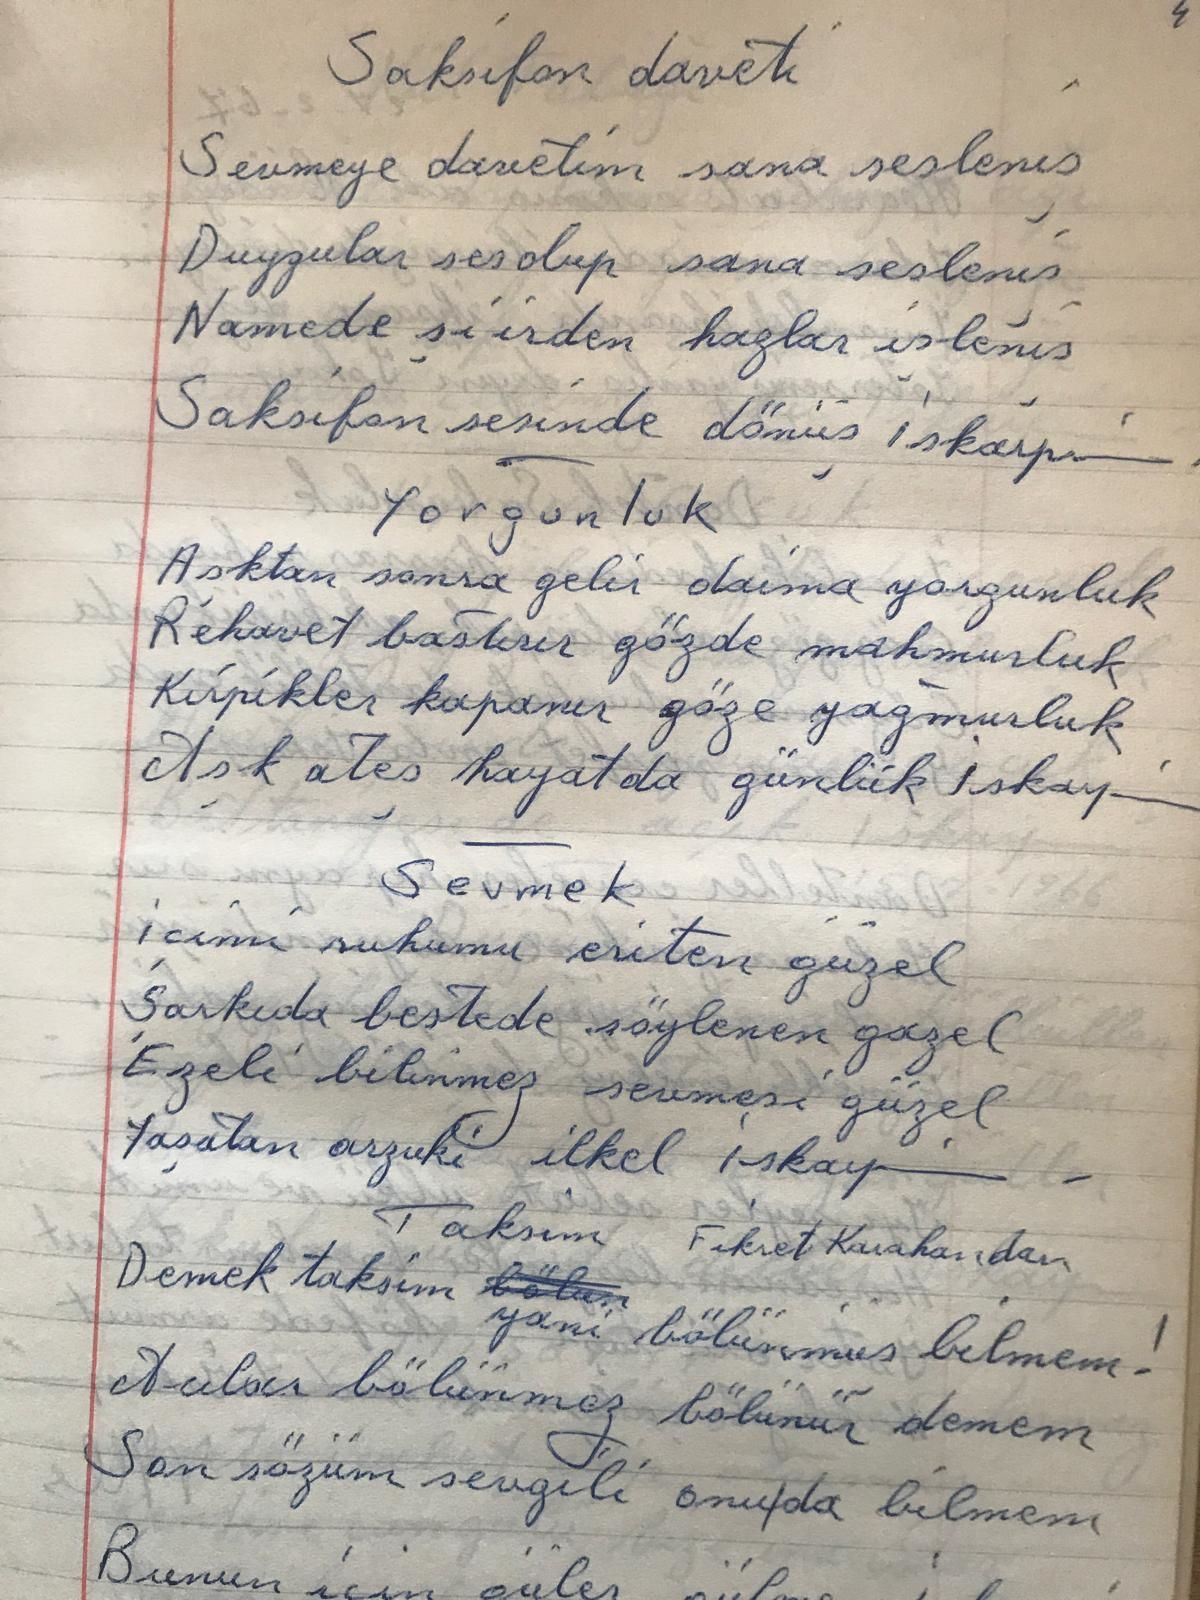 4
Saksifon daveti
Sevmeye davetim sana sesleniş
Duygular ses olup sana sesleniş
Namede şiirden hazlar işleniş
Saksifon sesinde dönüş iskarpi
Yorgunluk
Aşktan sonra gelir daima yorgunluk
Rehavet bastırır gözde mahmurluk
Kirpikler kapanır göze yağmurluk
Aşk ateş hayatda günlük iskay
Sevmek
içimi ruhumu eriten güzel
Şarkıda bestede söylenen gazel
Ezeli bilinmez sevmesi güzel
Yaşatan arzuki ilkel iskay
Taksim Fikret Karahandan
Demek taksim bölün
yani bölünmüş bilmem!
Acılar bölünmez bölünür demem
Son sözüm sevgili onuda bilmem
Bunun için güler